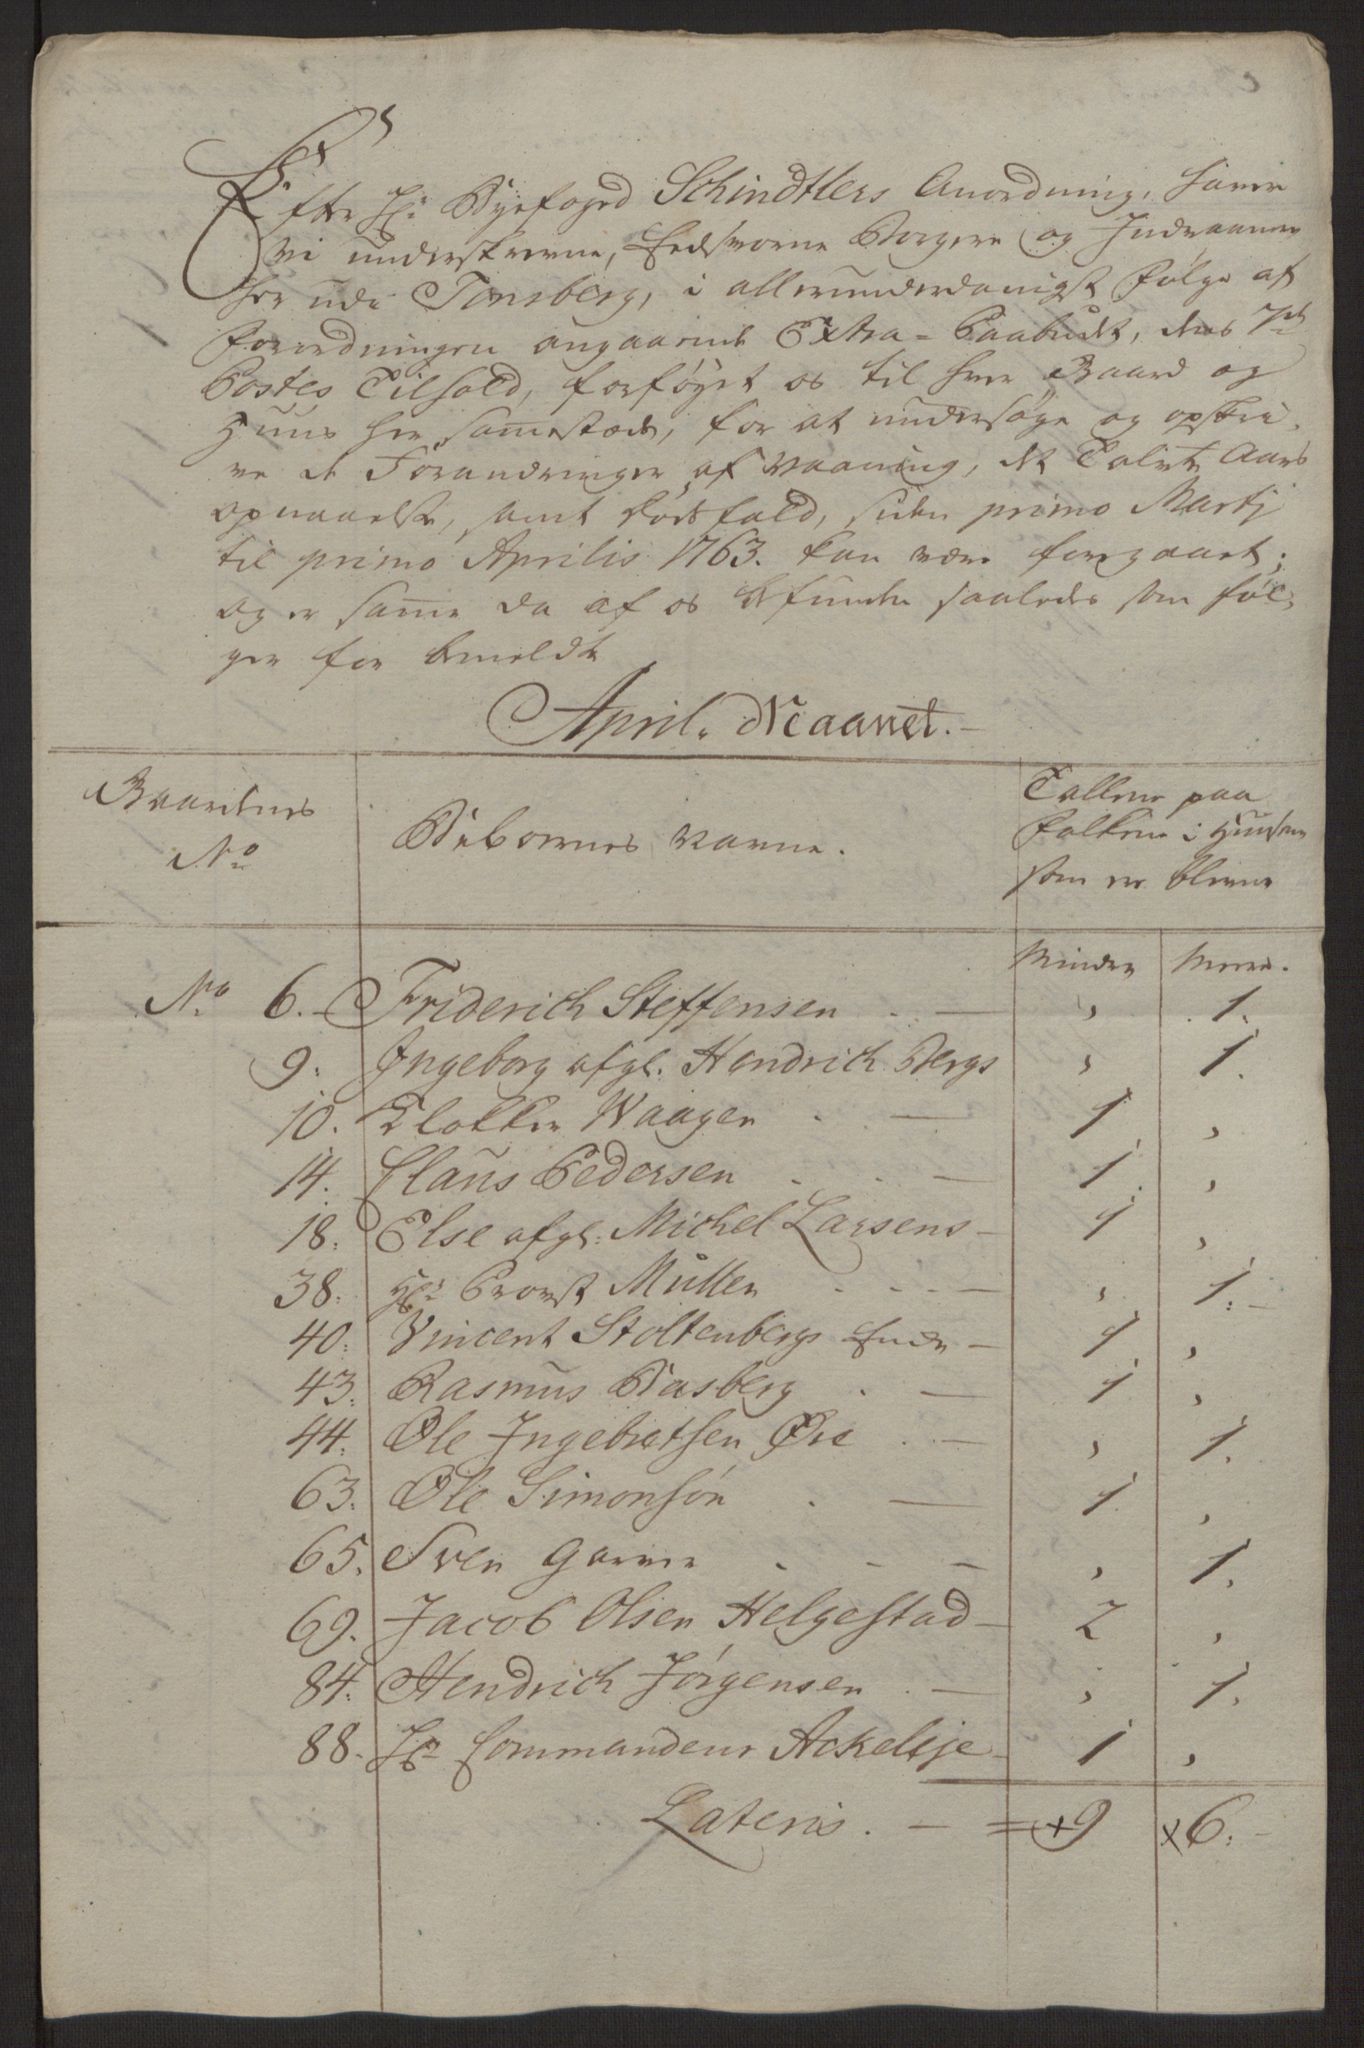 Efter Hr: Byefoged Schindtlers Anordning, haver
vi underskrevne, Eedsvorne Borgere og Indvaanere
her udi Tonsberg, i allerunderdanigst følge af
Forordningen angaaende Extra-Paabudet, dens 7de
Postes Tilhold, forføyet os til hver Gaard og
Huus her samestæds, for at undersøge og opskri-
ve de Forandringer af Vaaning, det Tolvte Aars
opnaaelse, samt dødsfald, siden primo Martij
til primo Aprilis 1763. kan være foregaaet;
og er same da af os befunden saaledes som føl-
ger for bemeldte
April. Maanet.
Gaardenes
No
Beboernes Navne.
Tallene paa
Folkene i Huusene
som er blevne
Minder | Meere.
No 6. Friderich Steffensen . — „ 1.
9: Ingeborg afgl. Hendrich Bergs „ 1.
10. Klokker Waagen . — 1 „
14. Claus Pedersen . . — 1. „
18: Else afgl: Michel Larsens — 1 „
38: Hr: Provst Müller . . . — „ 1:
40: Vincent Stoltenbergs Enke — 1 „
43: Rasmus Basberg . — 1 „
44: Ole Ingebretsen Øre . — „ 1.
63: Ole Simonsøn . — 1 „
65. Sven Garver . - — „ 1.
69. Jacob Olsen Helgestad — 2 „
84: Hendrich Jørgensen . — „ 1.
88. Hr Commandeur Ackeleje — 1 „
Lateris. — = +9 x6: